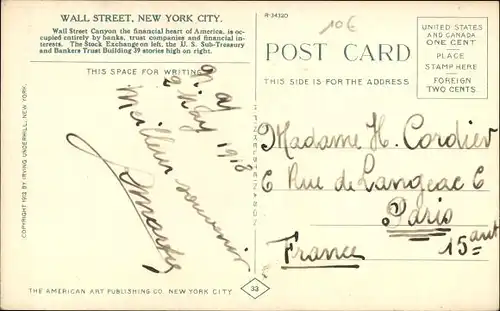 WALL STREET, NEW YORK CITY.
Wall Street Canyon the financial heart of America, is oc-
cupied entirely by banks, trust companies and financial in-
terests. The Stock Exchange on left, the U. S. Sub-Treasury
and Bankers Trust Building 39 stories high on right.
THIS SPACE FOR WRITING
N. Y.
2 May 1918
Meilleur souvenir
COPYRIGHT 1912 BY IRVING UNDERHILL, NEW YORK.
THE AMERICAN ART PUBLISHING CO. NEW YORK CITY
33
R-34320
10€
POST CARD
THIS SIDE IS FOR THE ADDRESS
UNITED STATES
AND CANADA
ONE CENT
PLACE
STAMP HERE
FOREIGN
TWO CENTS
Madame H. Cordier
6 Rue de Langeac 6
Paris
15 ant
France